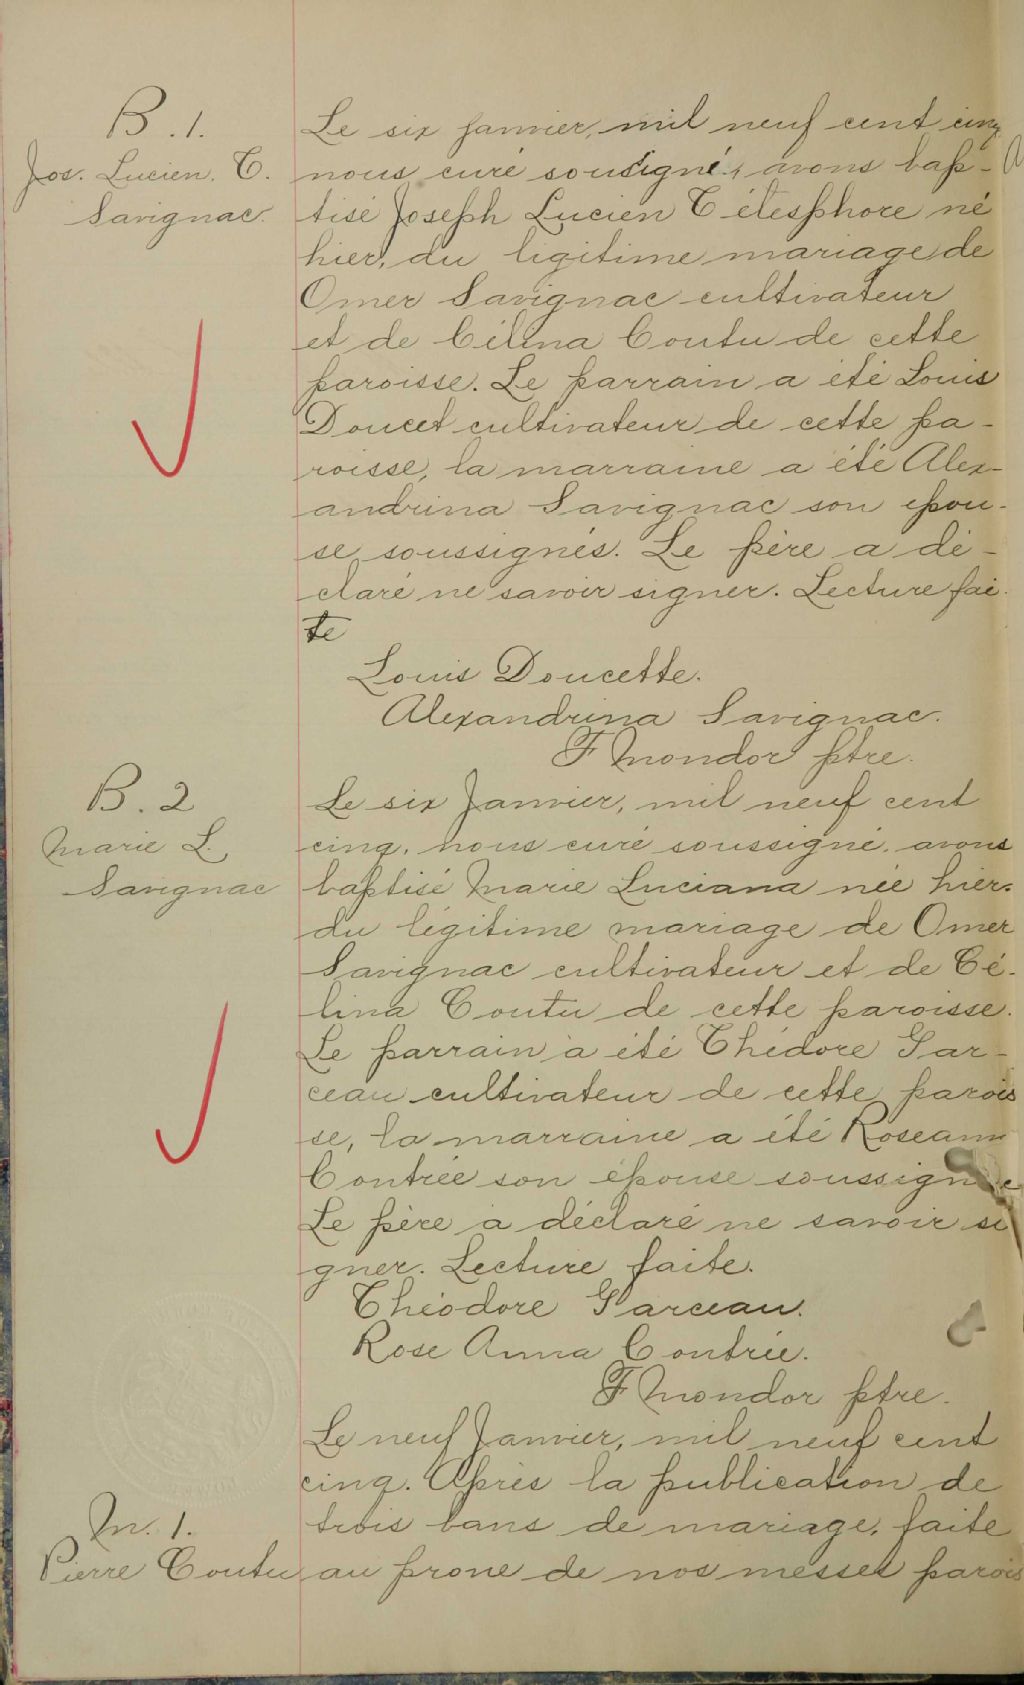 B. 1.
Jos. Lucien. T.
Savignac.
Le six janvier, mil neuf cent cinq
nous curé sousigné, avons bap-
tisé Joseph Lucien Télesphore né
hier, du ligitime mariage de
Omer Savignac cultivateur
et de Célina Coutu de cette
paroisse. Le parrain a été Louis
Doucet cultivateur de cette pa-
roisse, la marraine a été Alex-
andrina Savignac son épou-
se soussignés. Le père a dé-
claré ne savoir signer. Lecture fai-
te
Louis Doucette.
Alexandrina Savignac.
F Mondor ptre.
B. 2
Marie L.
Savignac
Le six Janvier, mil neuf cent
cinq, nous curé soussigné, avons
baptisé Marie Luciana née hier.
du légitime mariage de Omer
Savignac cultivateur et de Cé-
lina Coutu de cette paroisse.
Le parrain a été Thédore Gar-
ceau cultivateur de cette parois
se, la marraine a été Roseann
Contrée son épouse soussigne
Le père a déclaré ne savoir si
gner. Lecture faite.
Théodore Garceau.
Rose Anna Contrée.
F Mondor ptre.
M. 1.
Pierre Coutu
Le neuf Janvier, mil neuf cent
cinq. Après la publication de
trois bans de mariage, faite
au prone de nos messes parois